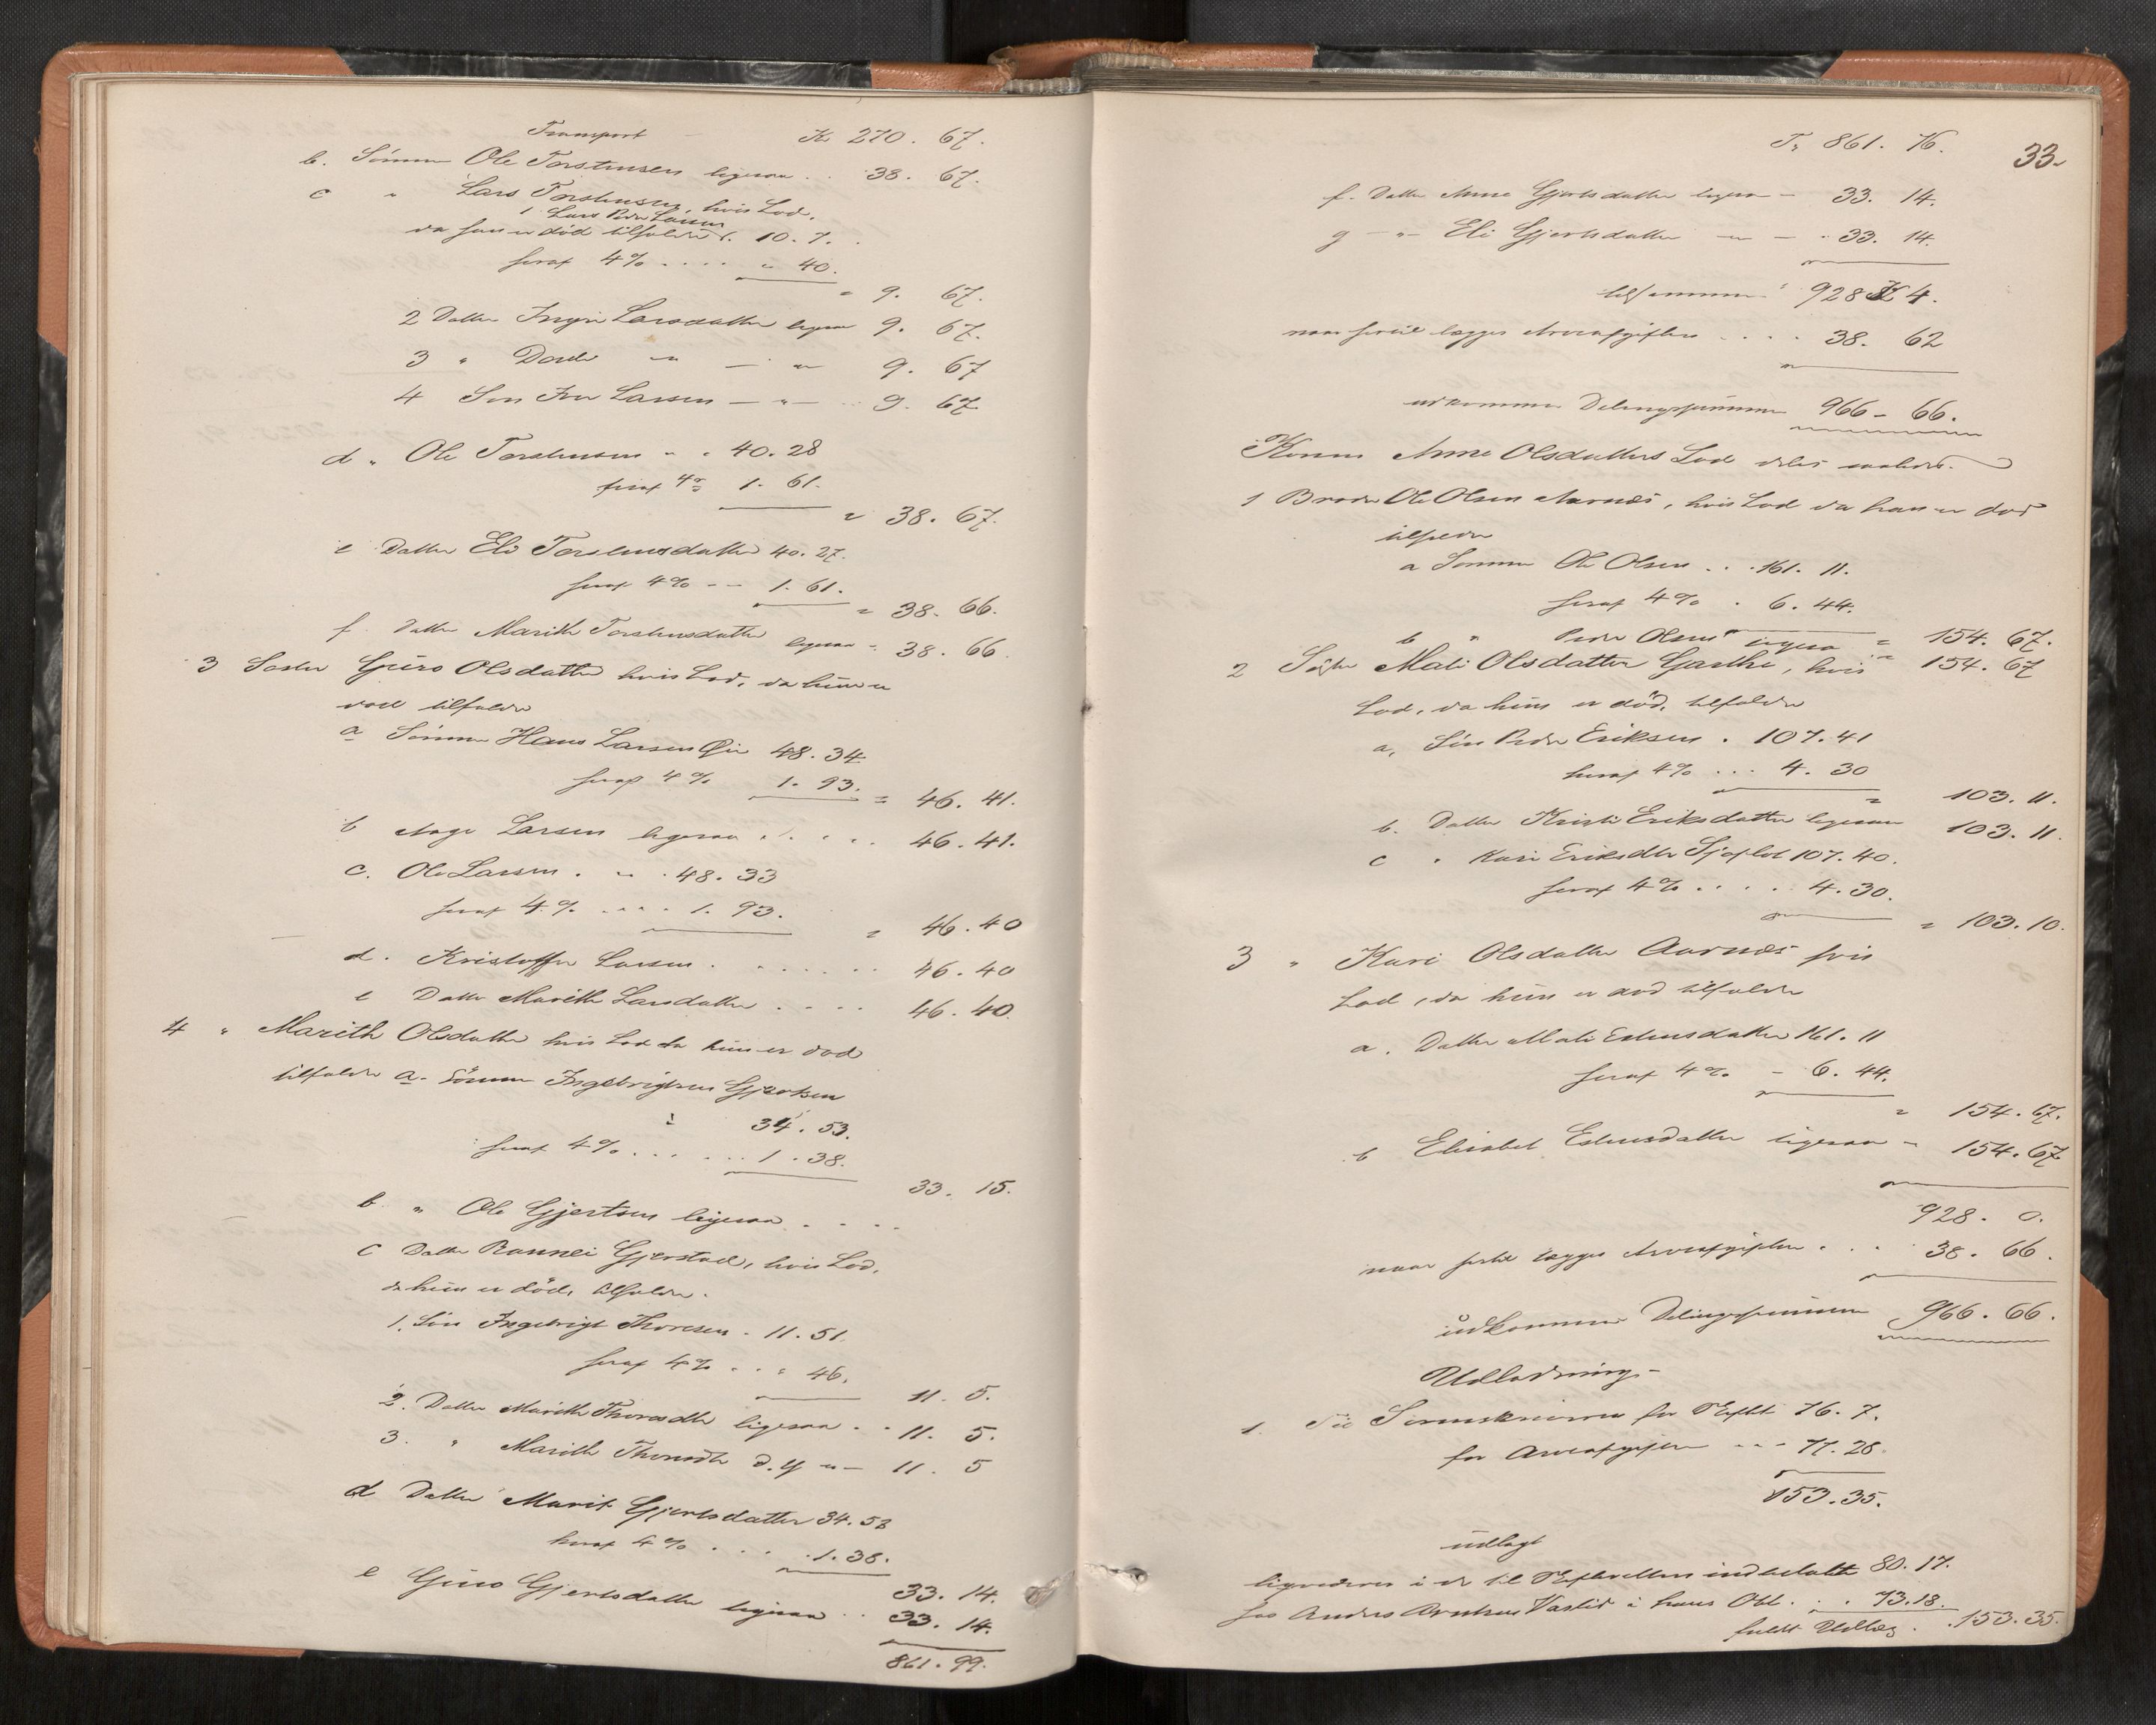 Transport Kr 270. 67.
b. Sønnen Ole Torstensen ligesaa . . 38. 67.
c " Lars Torstensen, hvis Lod,
1. Lars Peder Larsen
da han er død tilfalder . 10. 7.
heraf 4% . . . . " 40.
= 9. 67.
2 Datter Ingri Larsdatter ligesaa 9. 67.
3 " Dordi " — " 9. 67
4 Søn Iver Larsen — " — 9. 67
d " Ole Torstensen - . 40. 28
heraf 4% 1. 61.
= 38. 67.
e Datter Eli Torstensdatter 40. 27.
heraf 4% - - 1. 61.
= 38. 66.
f. Datter Marith Torstensdatter ligesaa - 38. 66.
3 Søster Guro Olsdatter hvis Lod, da hun er
død tilfalder
a Sønnen Hans Larsen Øie 48. 34
heraf 4% 1. 93. = 46. 41.
b Aage Larsen ligesaa . . . . 46. 41.
c. Ole Larsen . - . 48. 33
heraf 4% . . . . 1. 93.
= 46. 40
d. Kristoffer Larsen . . . . . . . 46. 40
e Datter Marith Larsdatter . . . . 46. 40.
4 " Marith Olsdatter hvis Lod da hun er død
tilfalder a. Sønnen Ingebrigtsen Gjertsen
34. 53.
heraf 4% . . . . . 1. 38.
33. 15.
b. " Ole Gjertsen ligesaa . . . .
c Datter Rannei Gjerstad, hvis Lod,
da hun er död, tilfalder.
1. Søn Ingebrigt Thoresen - 11. 51.
heraf 4% . . . 46.
11. 5.
2. Datter Marith Thoresdtr ligesaa . . 11. 5.
3. " Marith Thoresdtr d.y — " — 11. 5
d Datter Marit Gjertsdatter 34. 53
heraf 4% . . . . 1. 38.
33. 14.
e Guro Gjertsdatter ligesaa . . 33. 14.
861. 99.
33.
Tr 861. 76.
f. Datter Anne Gjertsdatter ligesaa — 33. 14.
g — " — Eli Gjertsdatter — " — . 33. 14.
tilsammen 928 4.
naar hertil lægges Arveafgiften . . . . 38. 62
udkommer Delingssummen 966 - 66.
Konens Anne Olsdatters Lod deles saaledes.
1 Broder Ole Olsen Aarnæs, hvis Lod da han er død
tilfalder
a Sønnen Ole Olsen . . . 161. 11.
heraf 4% . 6. 44.
= 154. 67.
b " Peder Olsen ligesaa = 154. 67
2 Søster Mali Olsdatter Garthe, hvis
Lod, da hun er död, tilfalder
a. Søn Peder Eriksen . 107. 41
heraf 4% . . . 4. 30
= 103. 11.
b. Datter Kristi Eriksdatter ligesaa 103. 11.
c " Kari Eriksdtr Sjøflot 107. 40.
heraf 4% . . . . 4. 30.
= 103. 10.
3 " Kari Olsdatter Aarnæs hvis
Lod, da hun er død tilfalder
a. Datter Mali Estensdatter 161. 11
heraf 4% - 6. 44.
= 154. 67.
b Elisabet Estensdatter ligesaa - 154. 67
928. 0.
naar hertil lægges Arveafgiften . . . 38. 66.
udkommer Delingssummen 966. 66.
Udlodning.
1. Til Sorenskriveren for 76. 7.
for Arveafgiften . . . 77. 28.
153. 35.
udlagt
i de til indbetalte 80. 17.
hos Anders Arntsen Vaslid i hans Obl. . . 73. 18.
fuldt Udlæg . . 153. 35.